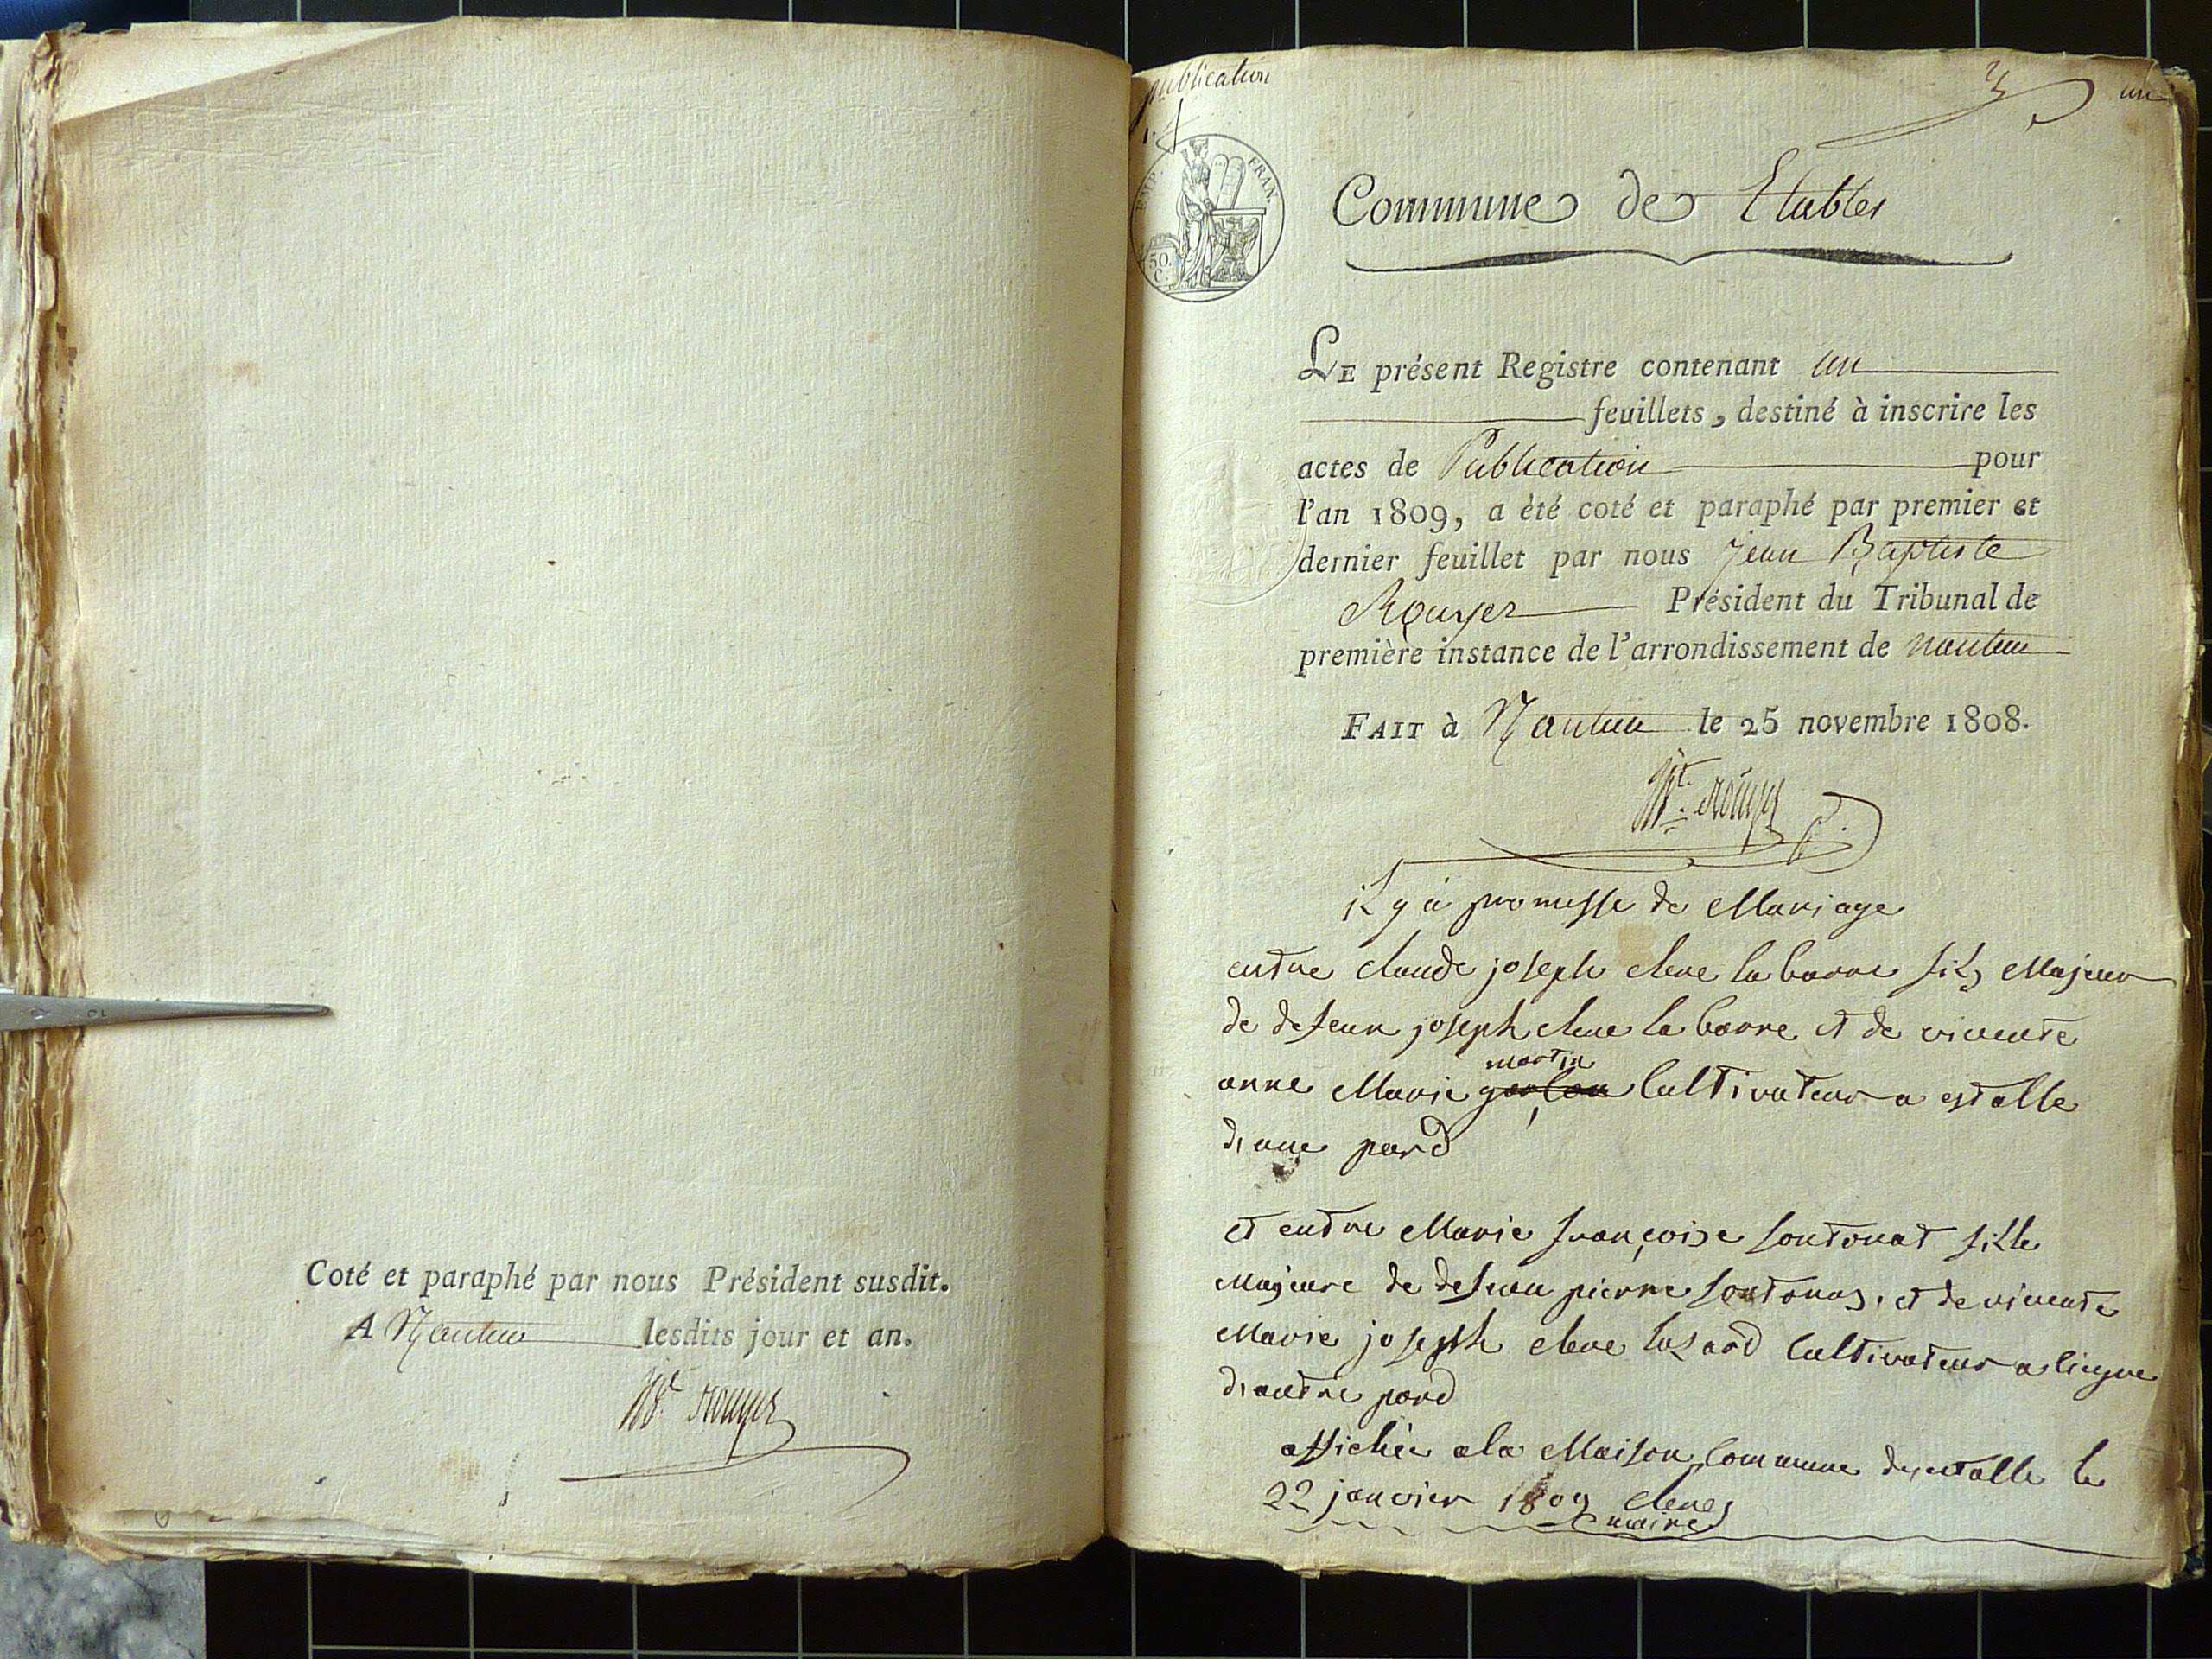 Coté et paraphé par nous Président susdit.
A Nantua lesdits jour et an.
Bte. Rouyer
publication
un
EMP. FRAN.
50.
C.
Commune de Etables
LE présent Registre contenant un
feuillets, destiné à inscrire les
actes de Publication pour
l'an 1809, a èté coté et paraphé par premier et
dernier feuillet par nous Jean Baptiste
Rouyer Président du Tribunal de
première instance de l'arrondissement de nantua
FAIT à Nantua le 25 novembre 1808.
Bte. Rouyer
il y a promesse de Mariage
entre claude joseph cleve la barre fils Majeur
de defeun joseph cleve la barre et de vivente
martin
anne Marie Cultivateur a estable
d,une pard
et entre Marie françoise sontonat fille
Majeure de defeun pierre sontonas, et de vivente
Marie joseph cleve Cultivateur a
d,autre pard
affichée a la Maison Commune le
22 janvier 1809 cleves
maire